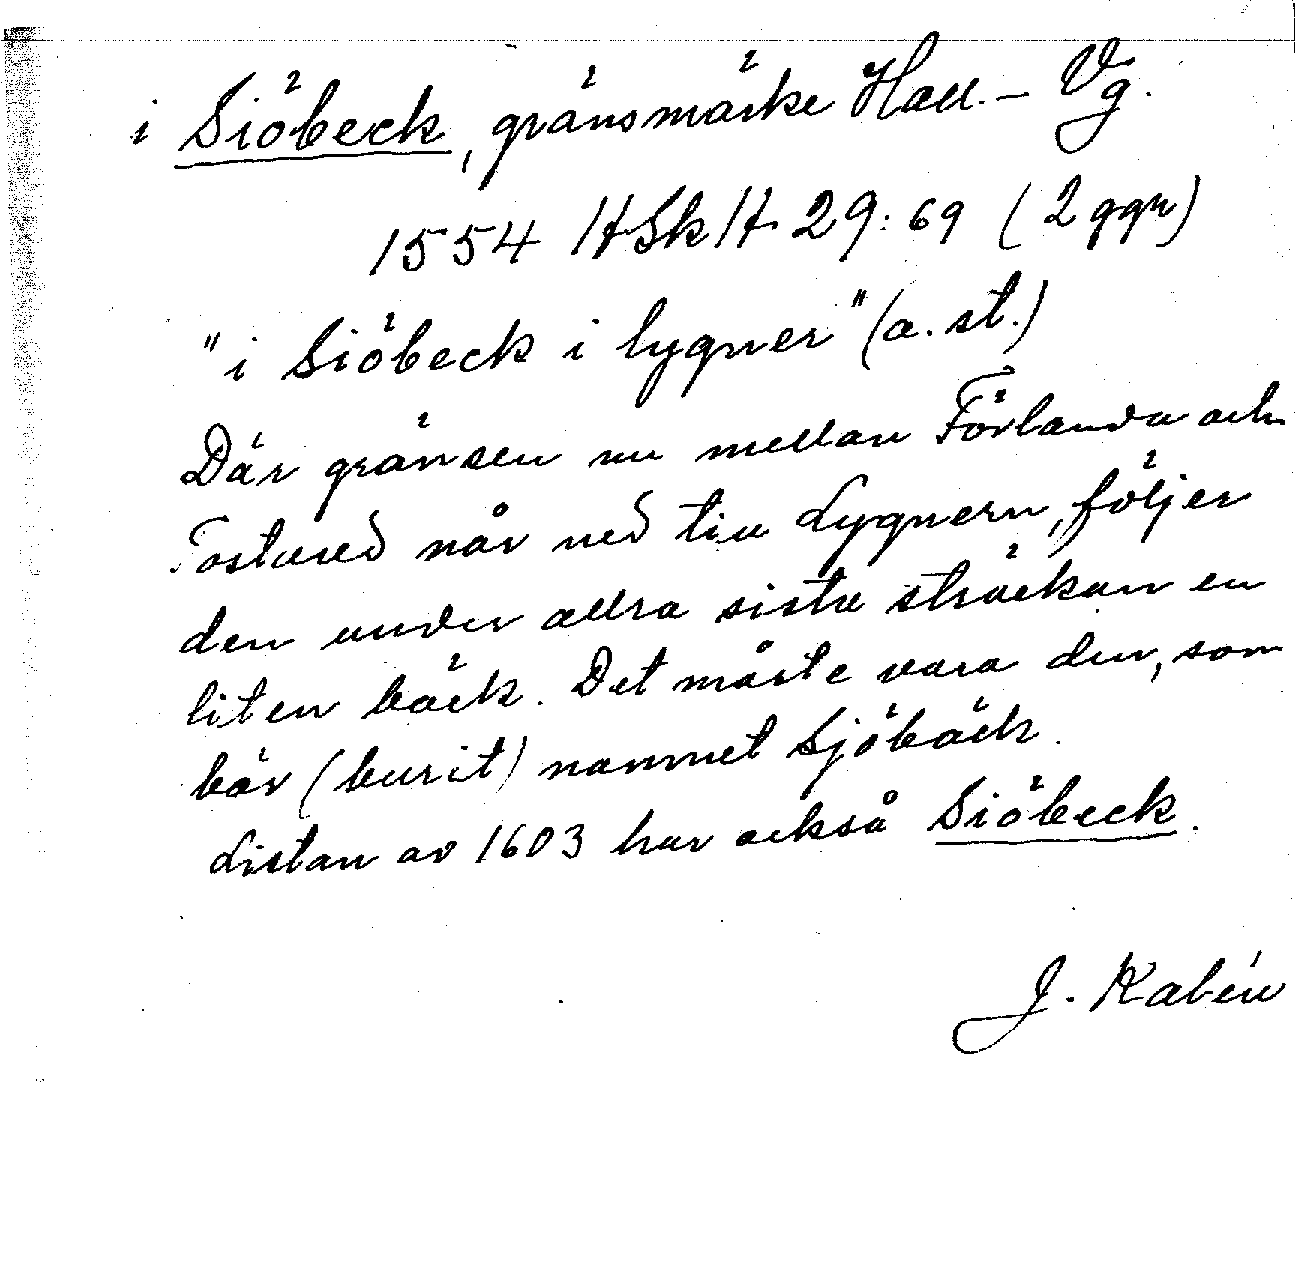 i Siöbeck, gränsmärke Hall. – Vg.
1554 HSkH 29:69 (2 ggr)
"i Siöbeck i lygner" (a. st.)
Där gränsen nu mellan Förlanda och
Tostared når ned till Lygnern, följer
den under allra sista sträckan en
liten bäck. Det måste vara den, som
bär (burit) namnet Sjöbäck.
Listan av 1603 har också Siöbeck.
J. Kalén